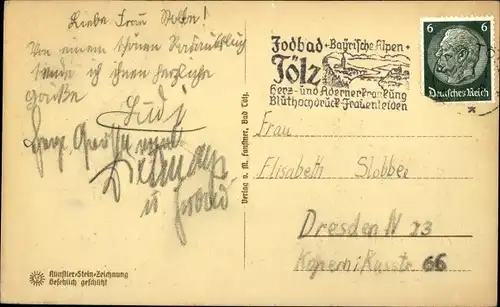 Liebe Frau
Von einem schönen Radausflug
sende ich ihnen herzliche
Grüße
u
Künstler-Stein-Zeichnung
Gesetzlich geschützt
Verlag v. M. Bad Tölz.
Jodbad Bayrische Alpen
Tölz
Herz- und Adernerkrankung
Blüthochdruck-Frauenleiden
6 6
Deutsches Reich
Frau
Elisabeth Slobbee
Dresden N 23
Kopernikusstr 66